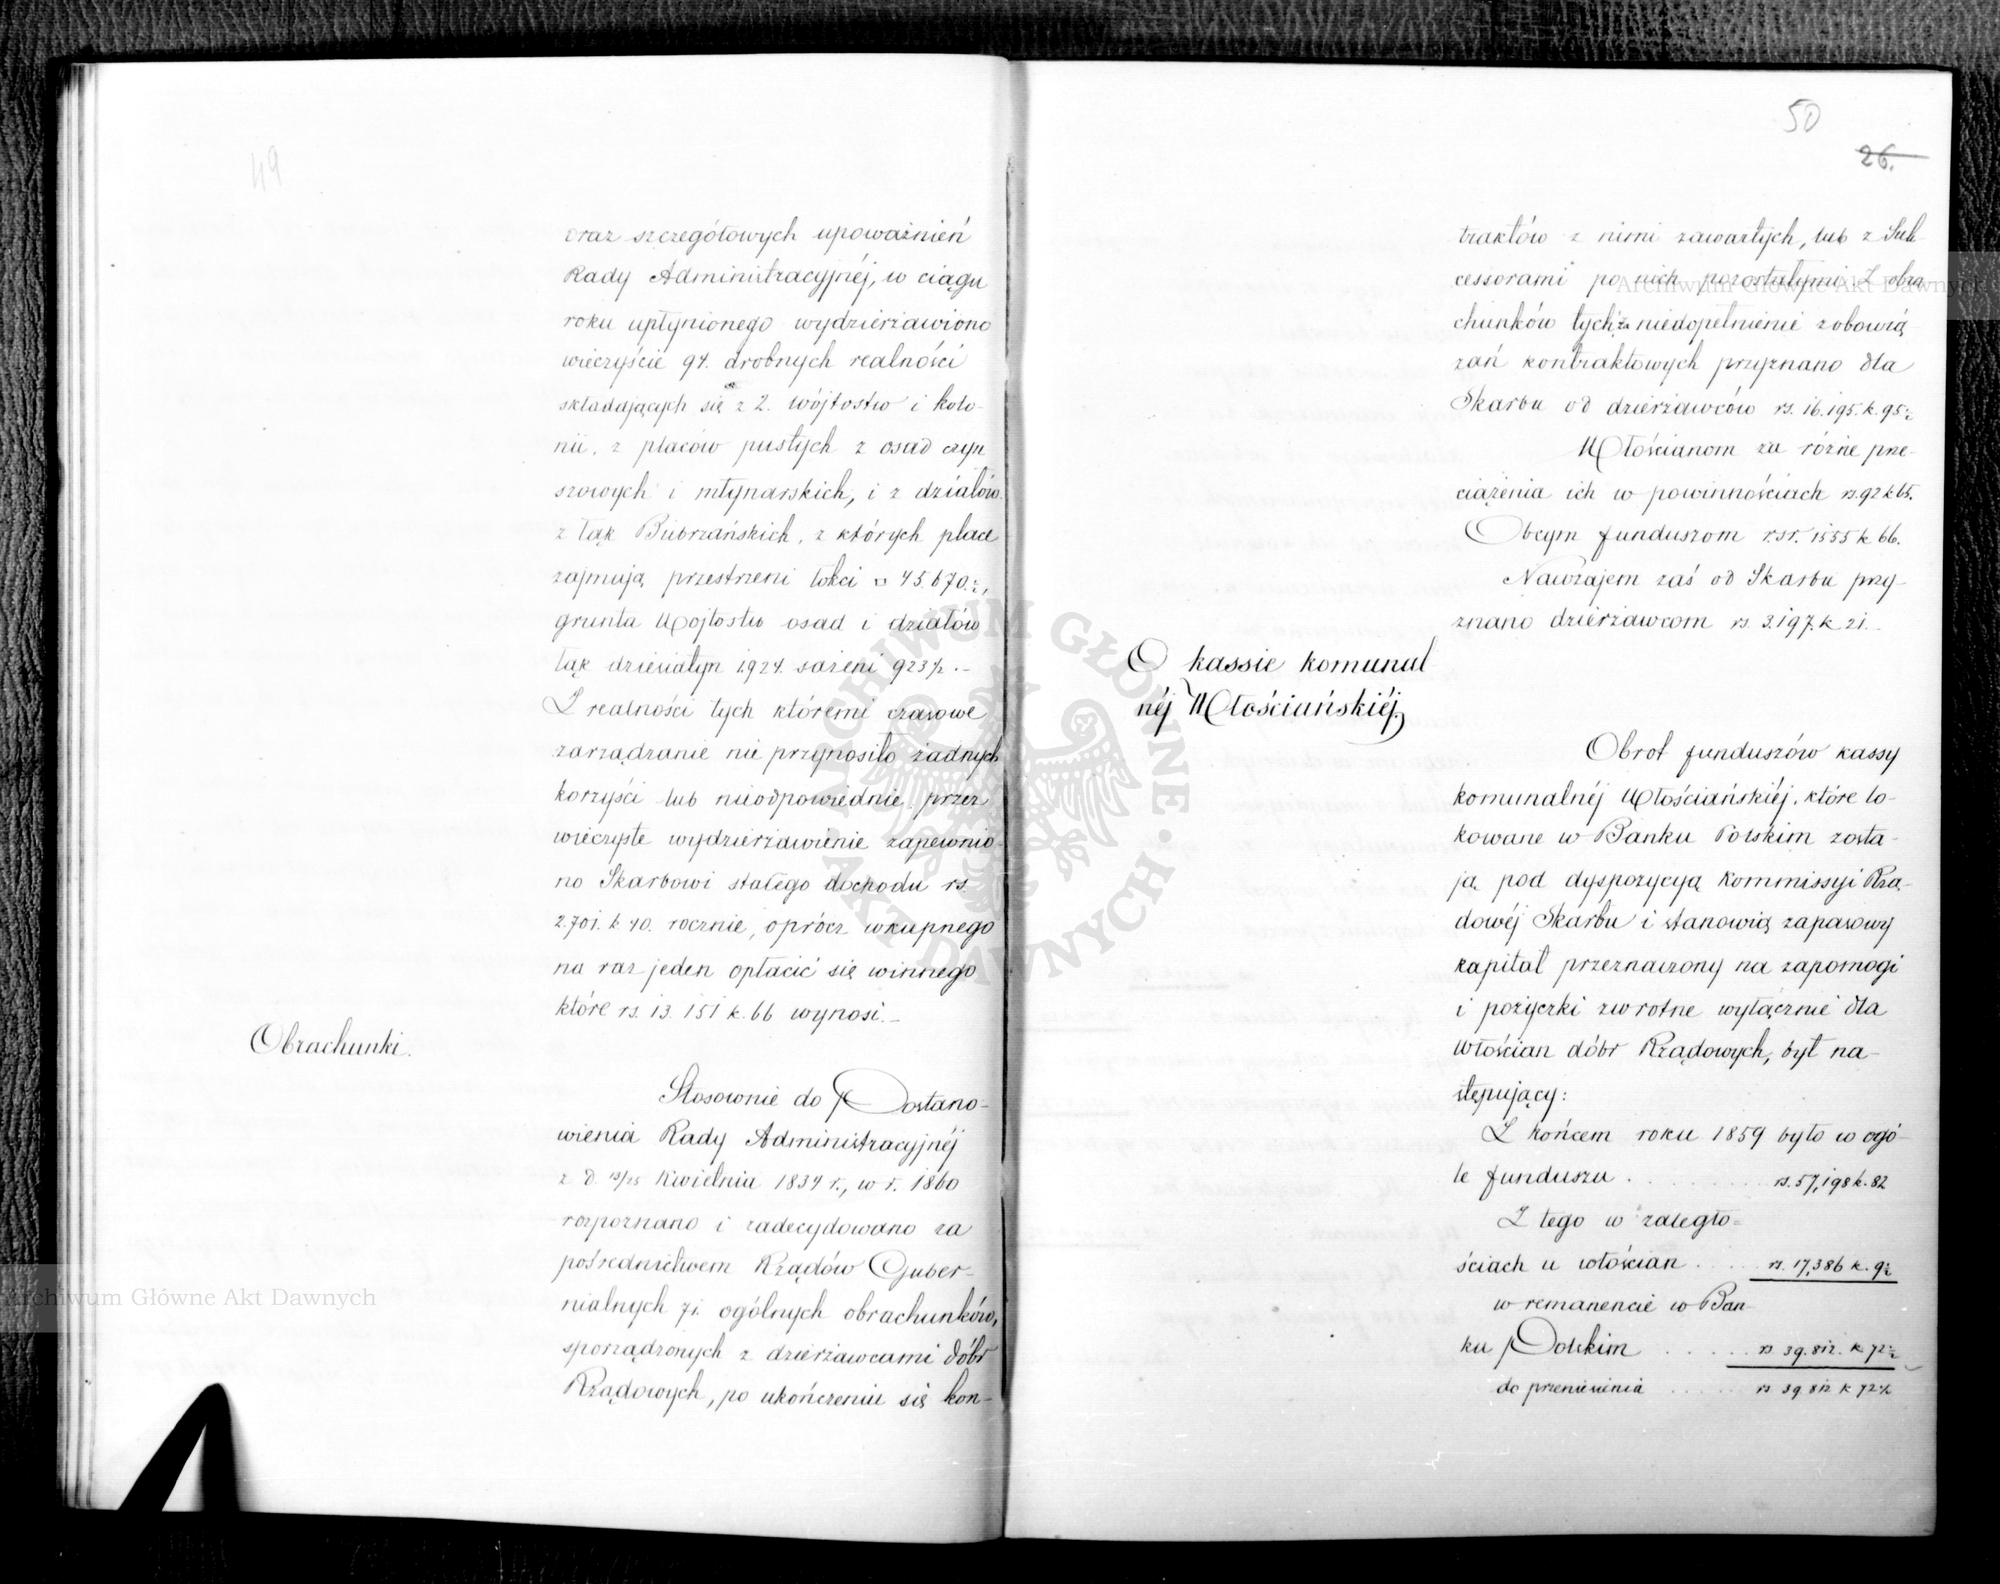 49
oraz szczegółowych upoważnień
Rady Administracyjnéj, w ciągu
roku upłynionego wydzierżawiono
wieczyście 94. drobnych realności
składających się z 2. wójtostw i kolo-
nii, z placów pustych z osad czyn
szowych i młynarskich, i z działów
z łąk Biebrzańskich, z których place
zajmują przestrzeni łokci □ 45.670.½,
grunta Wójtostw osad i działów
łąk dziesiatyn 1924. sażeni 923½.—
Z realności tych któremi czasowe
zarządzanie nie przynosiło żadnych
korzyści lub nieodpowiednie, przez
wieczyste wydzierżawienie zapewnio-
no Skarbowi stałego dochodu rs.
2.701. k. 40. rocznie, oprócz wkupnego
na raz jeden opłacić się winnego
które rs. 13.151 k. 66 wynosi.—
Obrachunki.
Stosownie do Postano-
wienia Rady Administracyjnéj
z d. 13/25 Kwietnia 1834 r., w r. 1860
rozpoznano i zadecydowano za
pośrednictwem Rządów Guber-
nialnych 71. ogólnych obrachunków,
sporządzonych z dzierżawcami dóbr
Rządowych, po ukończeniu się kon-
50
26.
traktów z nimi zawartych, lub z Suk-
cessorami po nich pozostałymi. Z obra
chunków tych za niedopełnienie zobowią
zań kontraktowych przyznano dla
Skarbu od dzierżawców rs. 16.195. k. 95½
Włościanom za różne prze-
ciążenia ich w powinnościach rs. 92 k 65.
Obcym funduszom r.sr. 1555 k 66.
Nawzajem zaś od Skarbu przy-
znano dzierżawcom rs 3.197. k 21.—
O kassie komunal
néj Włościańskiéj.
Obrot funduszów kassy
komunalnéj Włościańskiéj, które lo-
kowane w Banku Polskim zosta-
ją pod dyspozycyą Kommissyi Rzą-
dowéj Skarbu i stanowią zapasowy
kapitał przeznaczony na zapomogi
i pożyczki zwrotne wyłącznie dla
włościan dóbr Rządowych, był na-
stępujący:
Z końcem roku 1859 było w ogó-
le funduszu . . . . . . . rs. 57,198 k. 82
Z tego w zaległo=
ściach u włościan . . . . rs. 17,386 k. 9½
w remanencie w Ban-
ku Polskim . . . . . rs 39.812. k 72½
do przeniesienia . . . . . rs 39 812 k 72½
Archiwum Główne Akt Dawnych
Archiwum Główne Akt Dawnych
ARCHIWUM GŁÓWNE • AKT DAWNYCH •